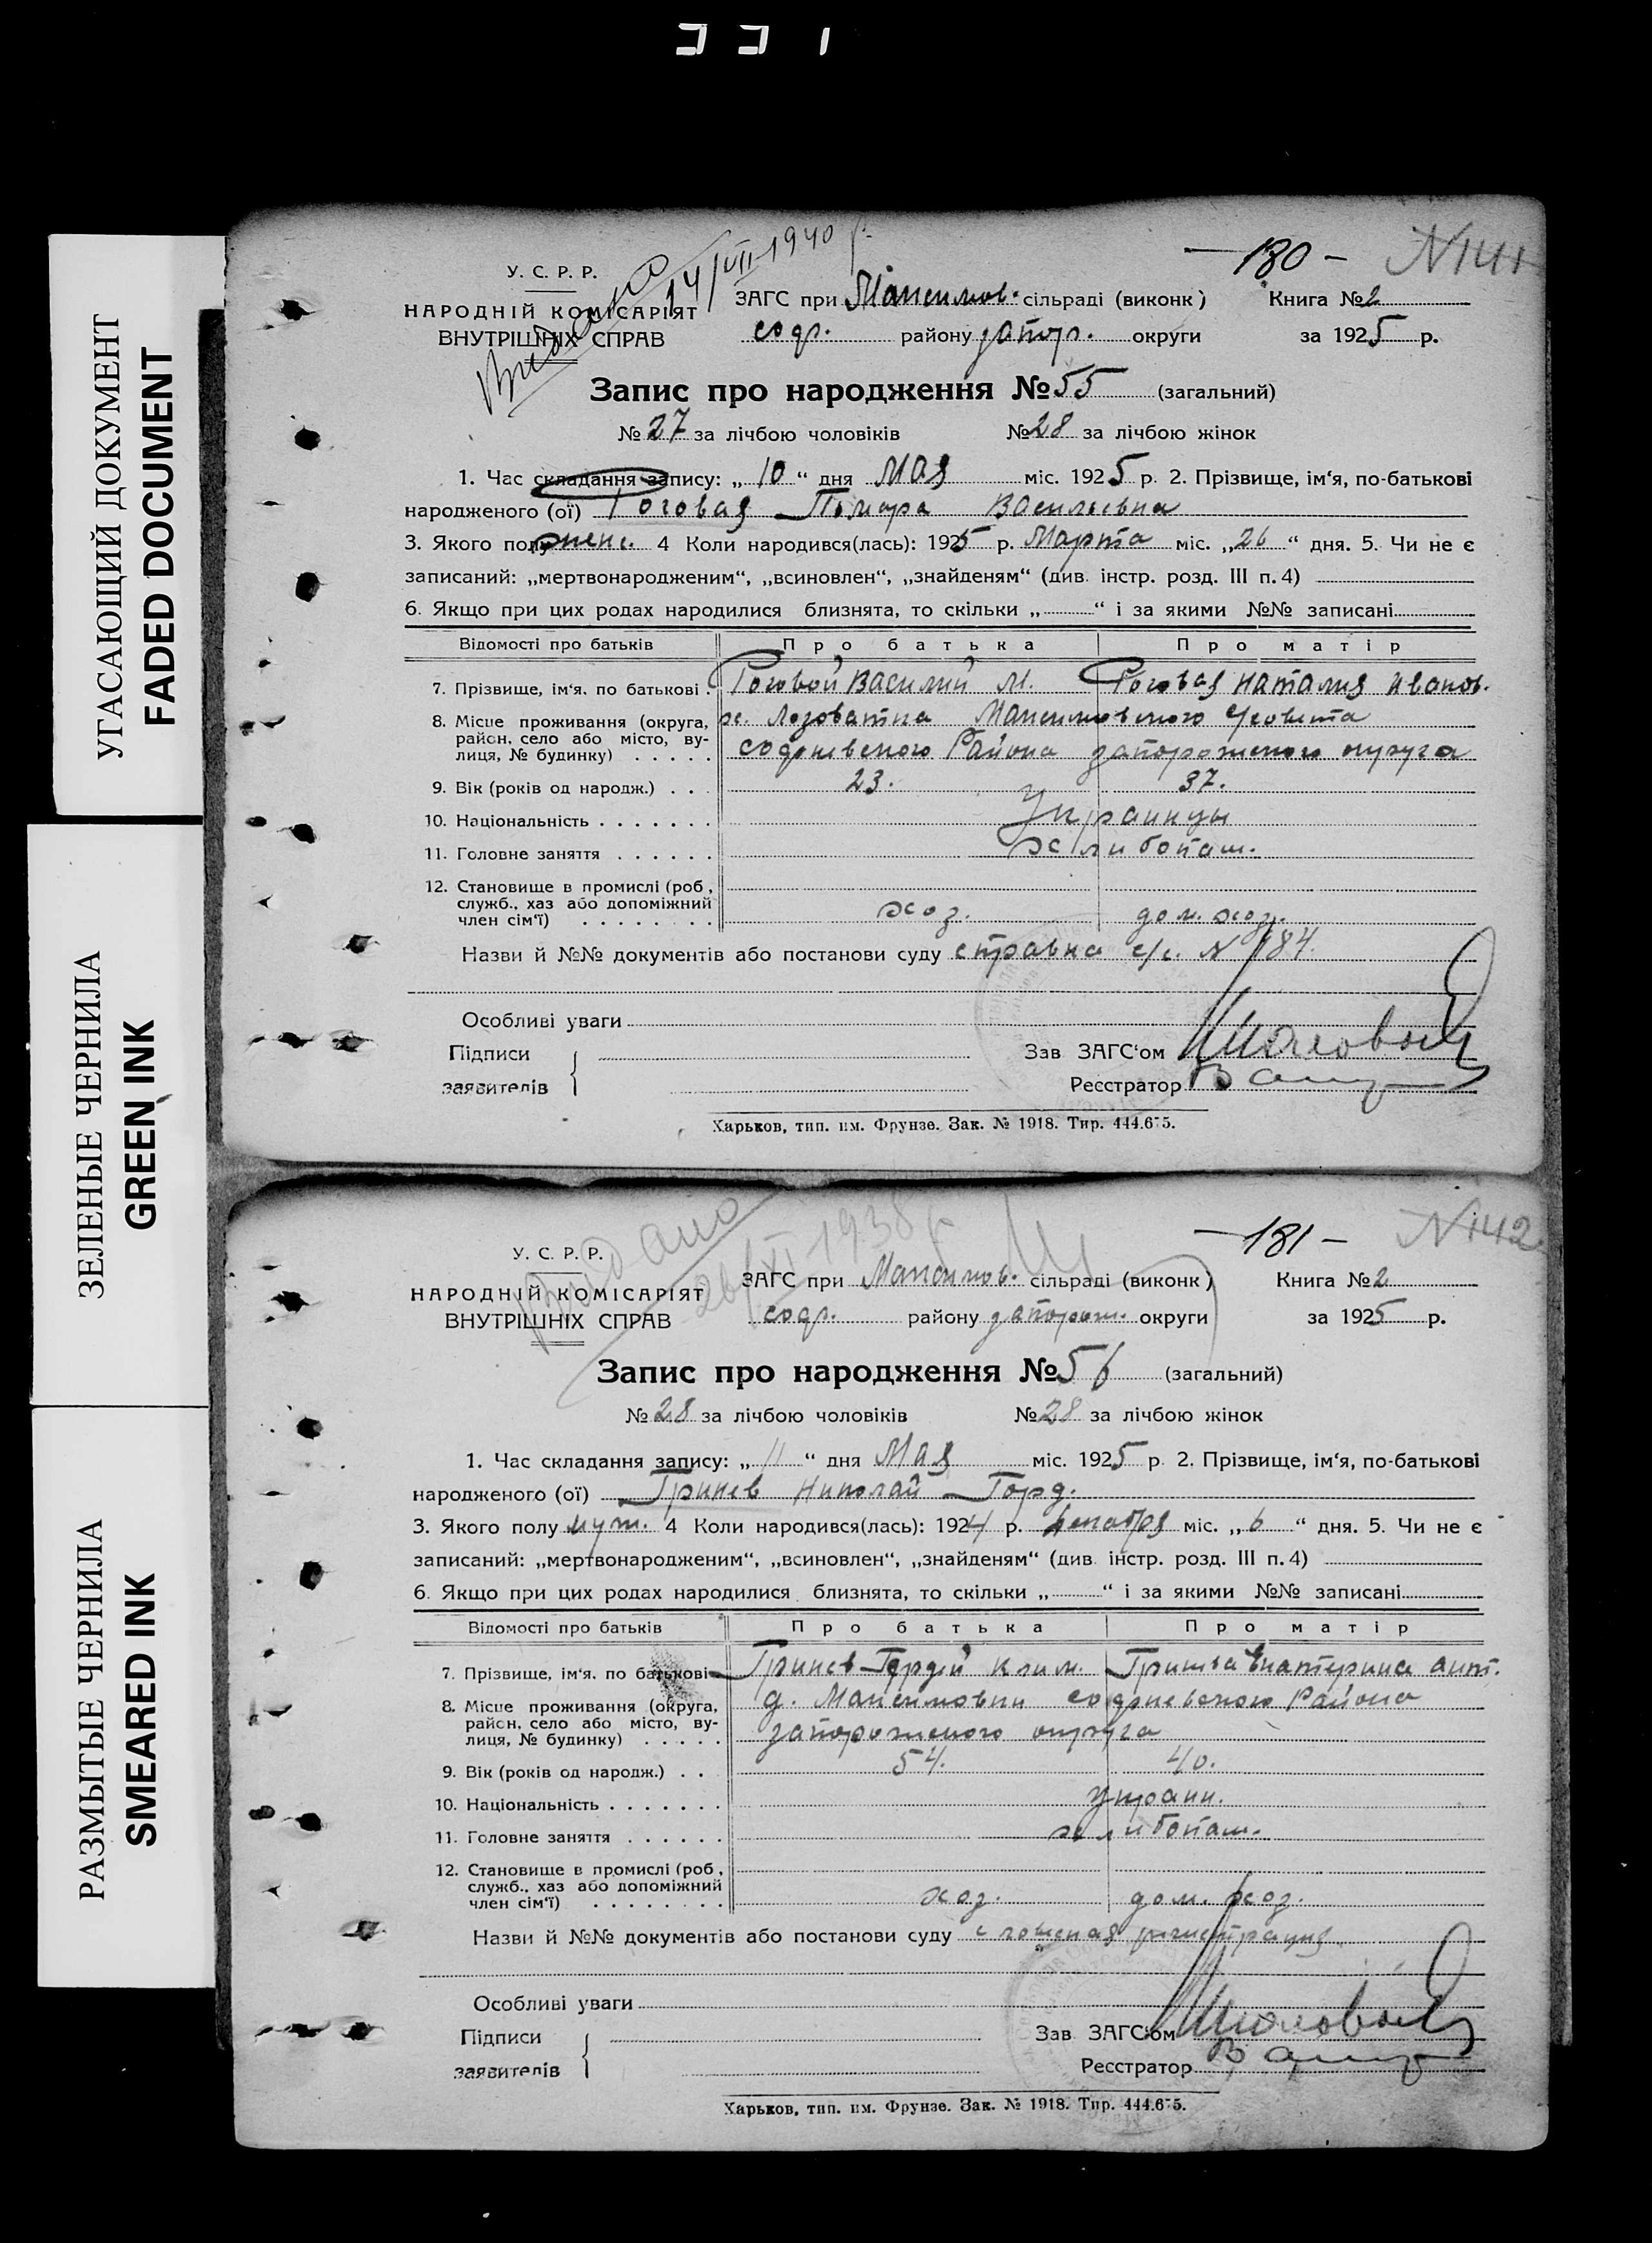 УГАСАЮЩИЙ ДОКУМЕНТ
FADED DOCUMENT
ЗЕЛЕНЫЕ ЧЕРНИЛА
GREEN INK
РАЗМЫТЫЕ ЧЕРНИЛА
SMEARED INK
Видано 14/VII-1940 р.
— 180 — N141
У. С. Р. Р.
НАРОДНІЙ КОМІСАРІЯТ
ВНУТРІШНІХ СПРАВ
ЗАГС при Максимов. сільраді (виконк) Книга № 2
софр. району запор. округи за 1925 р.
Запис про народження № 55 (загальний)
№ 27 за лічбою чоловіків № 28 за лічбою жінок
1. Час складання запису: „ 10 “ дня Мая міс. 1925 р. 2. Прізвище, ім‘я, по-батькові
народженого (ої) Роговая Тамара Васильевна
3. Якого полу женс. 4 Коли народився(лась): 1925 р. Марта міс. „ 26 “ дня. 5. Чи не є
записаний: „мертвонародженим“, „всиновлен“, „знайденям“ (див. інстр. розд. III п. 4)
6. Якщо при цих родах народилися близнята, то скільки „ “ і за якими №№ записані
Відомості про батьків Про батька Про матір
7. Прізвище, ім‘я. по батькові . Роговой Василий М. Роговая Наталия Иванов.
8. Місце проживання (округа, х. Лозоватка Максимовского с/совета
район, село або місто, ву- софиевского Района запорожского округа
лиця, № будинку) . . . . .
9. Вік (років од народж.) . . . 23. 37.
10. Національність . . . . . . . Украинцы
11. Головне заняття . . . . . . хлибопаш.
12. Становище в промислі (роб ,
служб., хаз або допоміжний
член сім‘ї) . . . . . . . . хоз. дом. хоз.
Назви й №№ документів або постанови суду справка с/с. N 184.
Особливі уваги
Підписи
заявителів
Зав ЗАГС‘ом
Реєстратор
Харьков, тип. им. Фрунзе. Зак. № 1918. Тир. 444.675.
Видано 26/XI-1938 р.
— 181 — N142
У. С. Р. Р.
НАРОДНІЙ КОМІСАРІЯТ
ВНУТРІШНІХ СПРАВ
ЗАГС при Максимов. сільраді (виконк) Книга № 2
софр. району запорож. округи за 1925 р.
Запис про народження № 56 (загальний)
№ 28 за лічбою чоловіків № 28 за лічбою жінок
1. Час складання запису: „ 11 “ дня Мая міс. 1925 р. 2. Прізвище, ім‘я, по-батькові
народженого (ої) Гринев Николай Горд.
3. Якого полу муж. 4 Коли народився(лась): 1924 р. декабря міс. „ 6 “ дня. 5. Чи не є
записаний: „мертвонародженим“, „всиновлен“, „знайденям“ (див. інстр. розд. III п. 4)
6. Якщо при цих родах народилися близнята, то скільки „ “ і за якими №№ записані
Відомості про батьків Про батька Про матір
7. Прізвище, ім‘я. по батькові Гринев Гордий Клим. Гринева Екатерина Ант.
8. Місце проживання (округа, д. Максимовки софиевского Района
район, село або місто, ву- запорожского округа
лиця, № будинку) . . . . .
9. Вік (років од народж.) . . 54. 40.
10. Національність . . . . . . . Украин.
11. Головне заняття . . . . . . хлибопаш.
12. Становище в промислі (роб ,
служб., хаз або допоміжний
член сім‘ї) . . . . . . . . хоз. дом. хоз.
Назви й №№ документів або постанови суду регистрация
Особливі уваги
Підписи
заявителів
Зав ЗАГС‘ом
Реєстратор
Харьков, тип. им. Фрунзе. Зак. № 1918. Тир. 444.675.